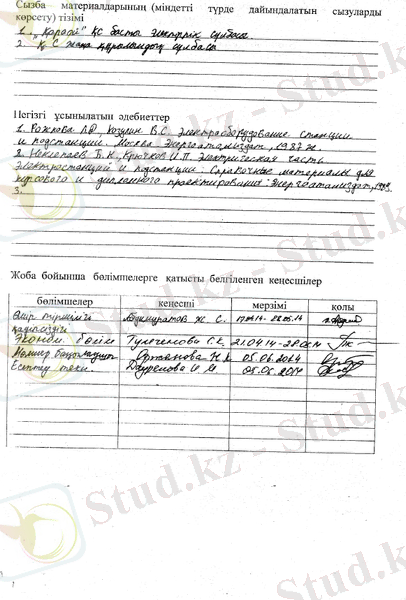 Сызба материалдарының (міндетті түрде дайындалатын сызулардың
көрсету) тізімі
1. „Қараой" ҚС басты электрлік сұлбасы.
2. Қ С жаңа құрылымдық сұлбасы
Негізгі ұсынылатын әдебиеттер
1. Рожкова Л.Д., Козулин В.С. Электрооборудование станции
и подстанции. Москва Энергоатомиздат, 1987 ж.
2. Неклепаев Б.Н., Крючков И.П. Электрическая часть
электростанций и подстанции: Справочные материалы для
курсового и дипломного проектирования: Энергоатомиздат, 1989.
3.
Жоба бойынша бөлімшелерге қатысты белгіленген кеңесшілер
бөлімшелер кеңесші мерзімі қолы
Өмір тіршілігі Абдимуратов Ж. С.
қауіпсіздігі
Эконом. бөлім 21.04.14-
05.06.2014
Есептеу техн. 05.06.2014
Stud.kz